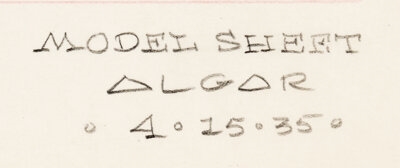 MODEL SHEET
ALGAR
° 4 ° 15 ° 35 °